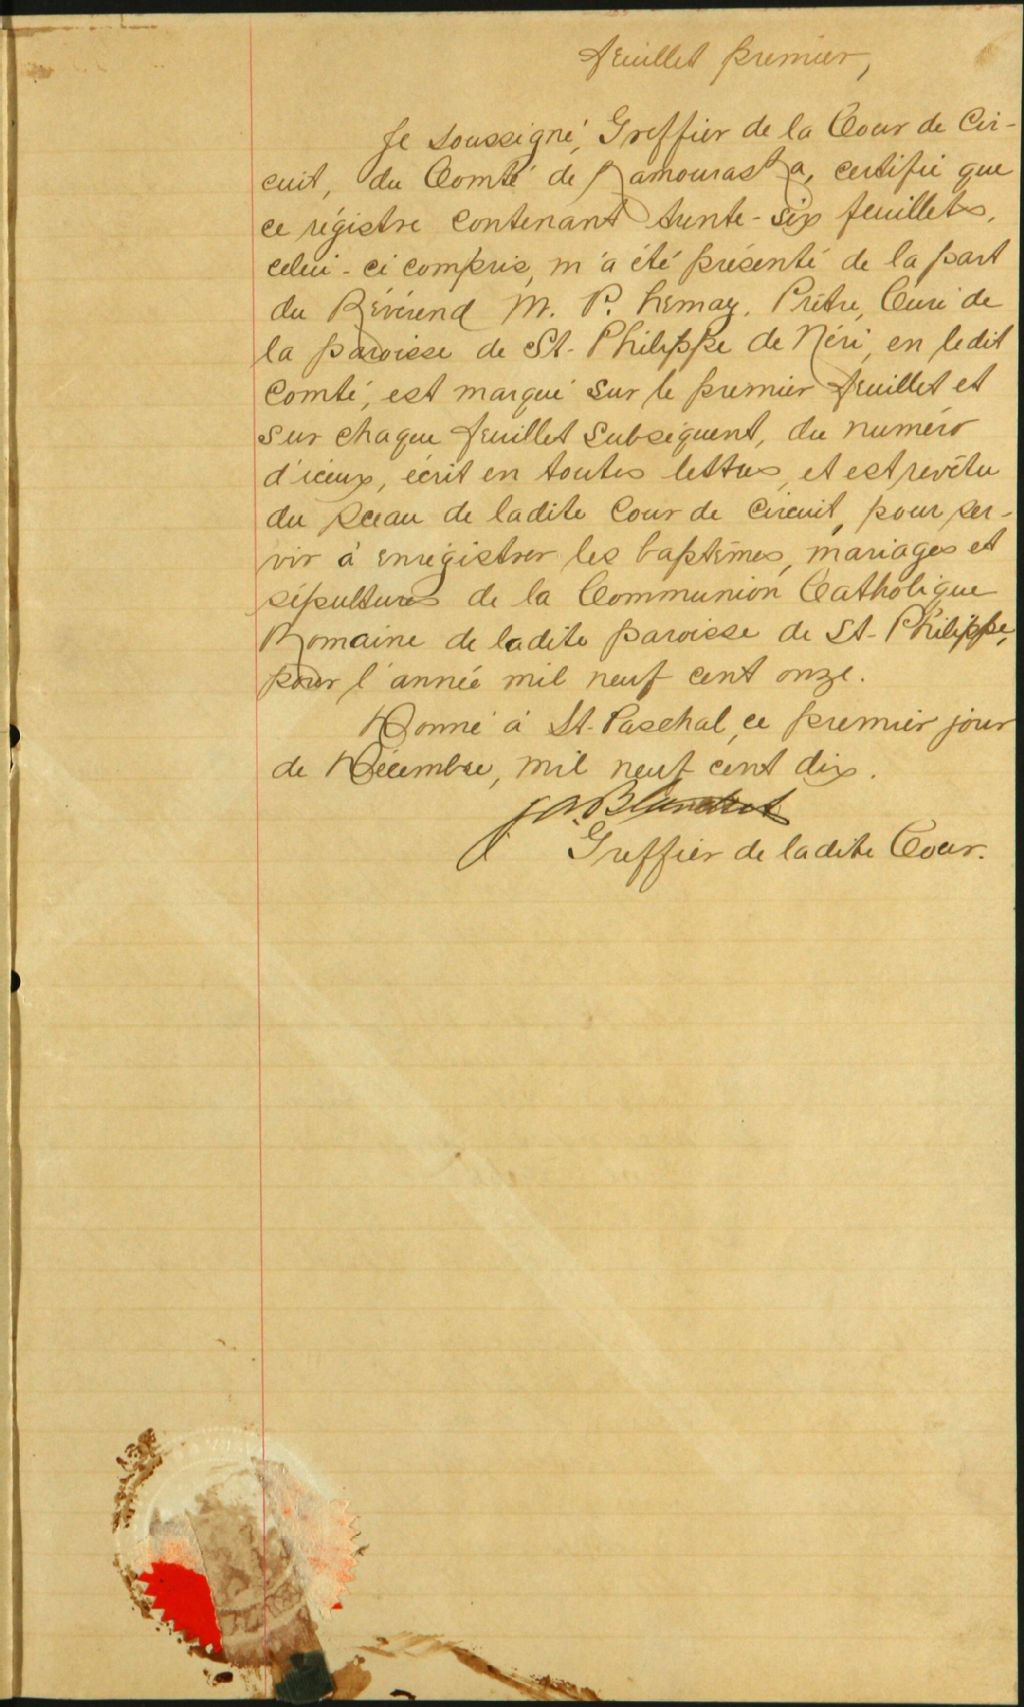 feuillet premier,
Je soussigné, Greffier de la Cour de Cir-
cuit, du Comté de Kamouraska, certifie que
ce régistre contenant trente-six feuillets,
celui-ci compris, m'a été présenté de la part
du Révérend M. P. Lemay, Prêtre, Curé de
la paroisse de St-Philippe de Néri, en le dit
Comté, est marqué sur le premier feuillet et
sur chaque feuillet subséquent, du numéro
d'iceux, écrit en toutes lettres, et est revêtu
du sceau de ladite Cour de Circuit, pour ser-
vir à enrégistrer les baptêmes, mariages et
sépultures de la Communion Catholique
Romaine de ladite paroisse de St-Philippe,
pour l'année mil neuf cent onze.
Donné à St-Paschal, ce premier jour
de Décembre, mil neuf cent dix.
Greffier de ladite Cour.